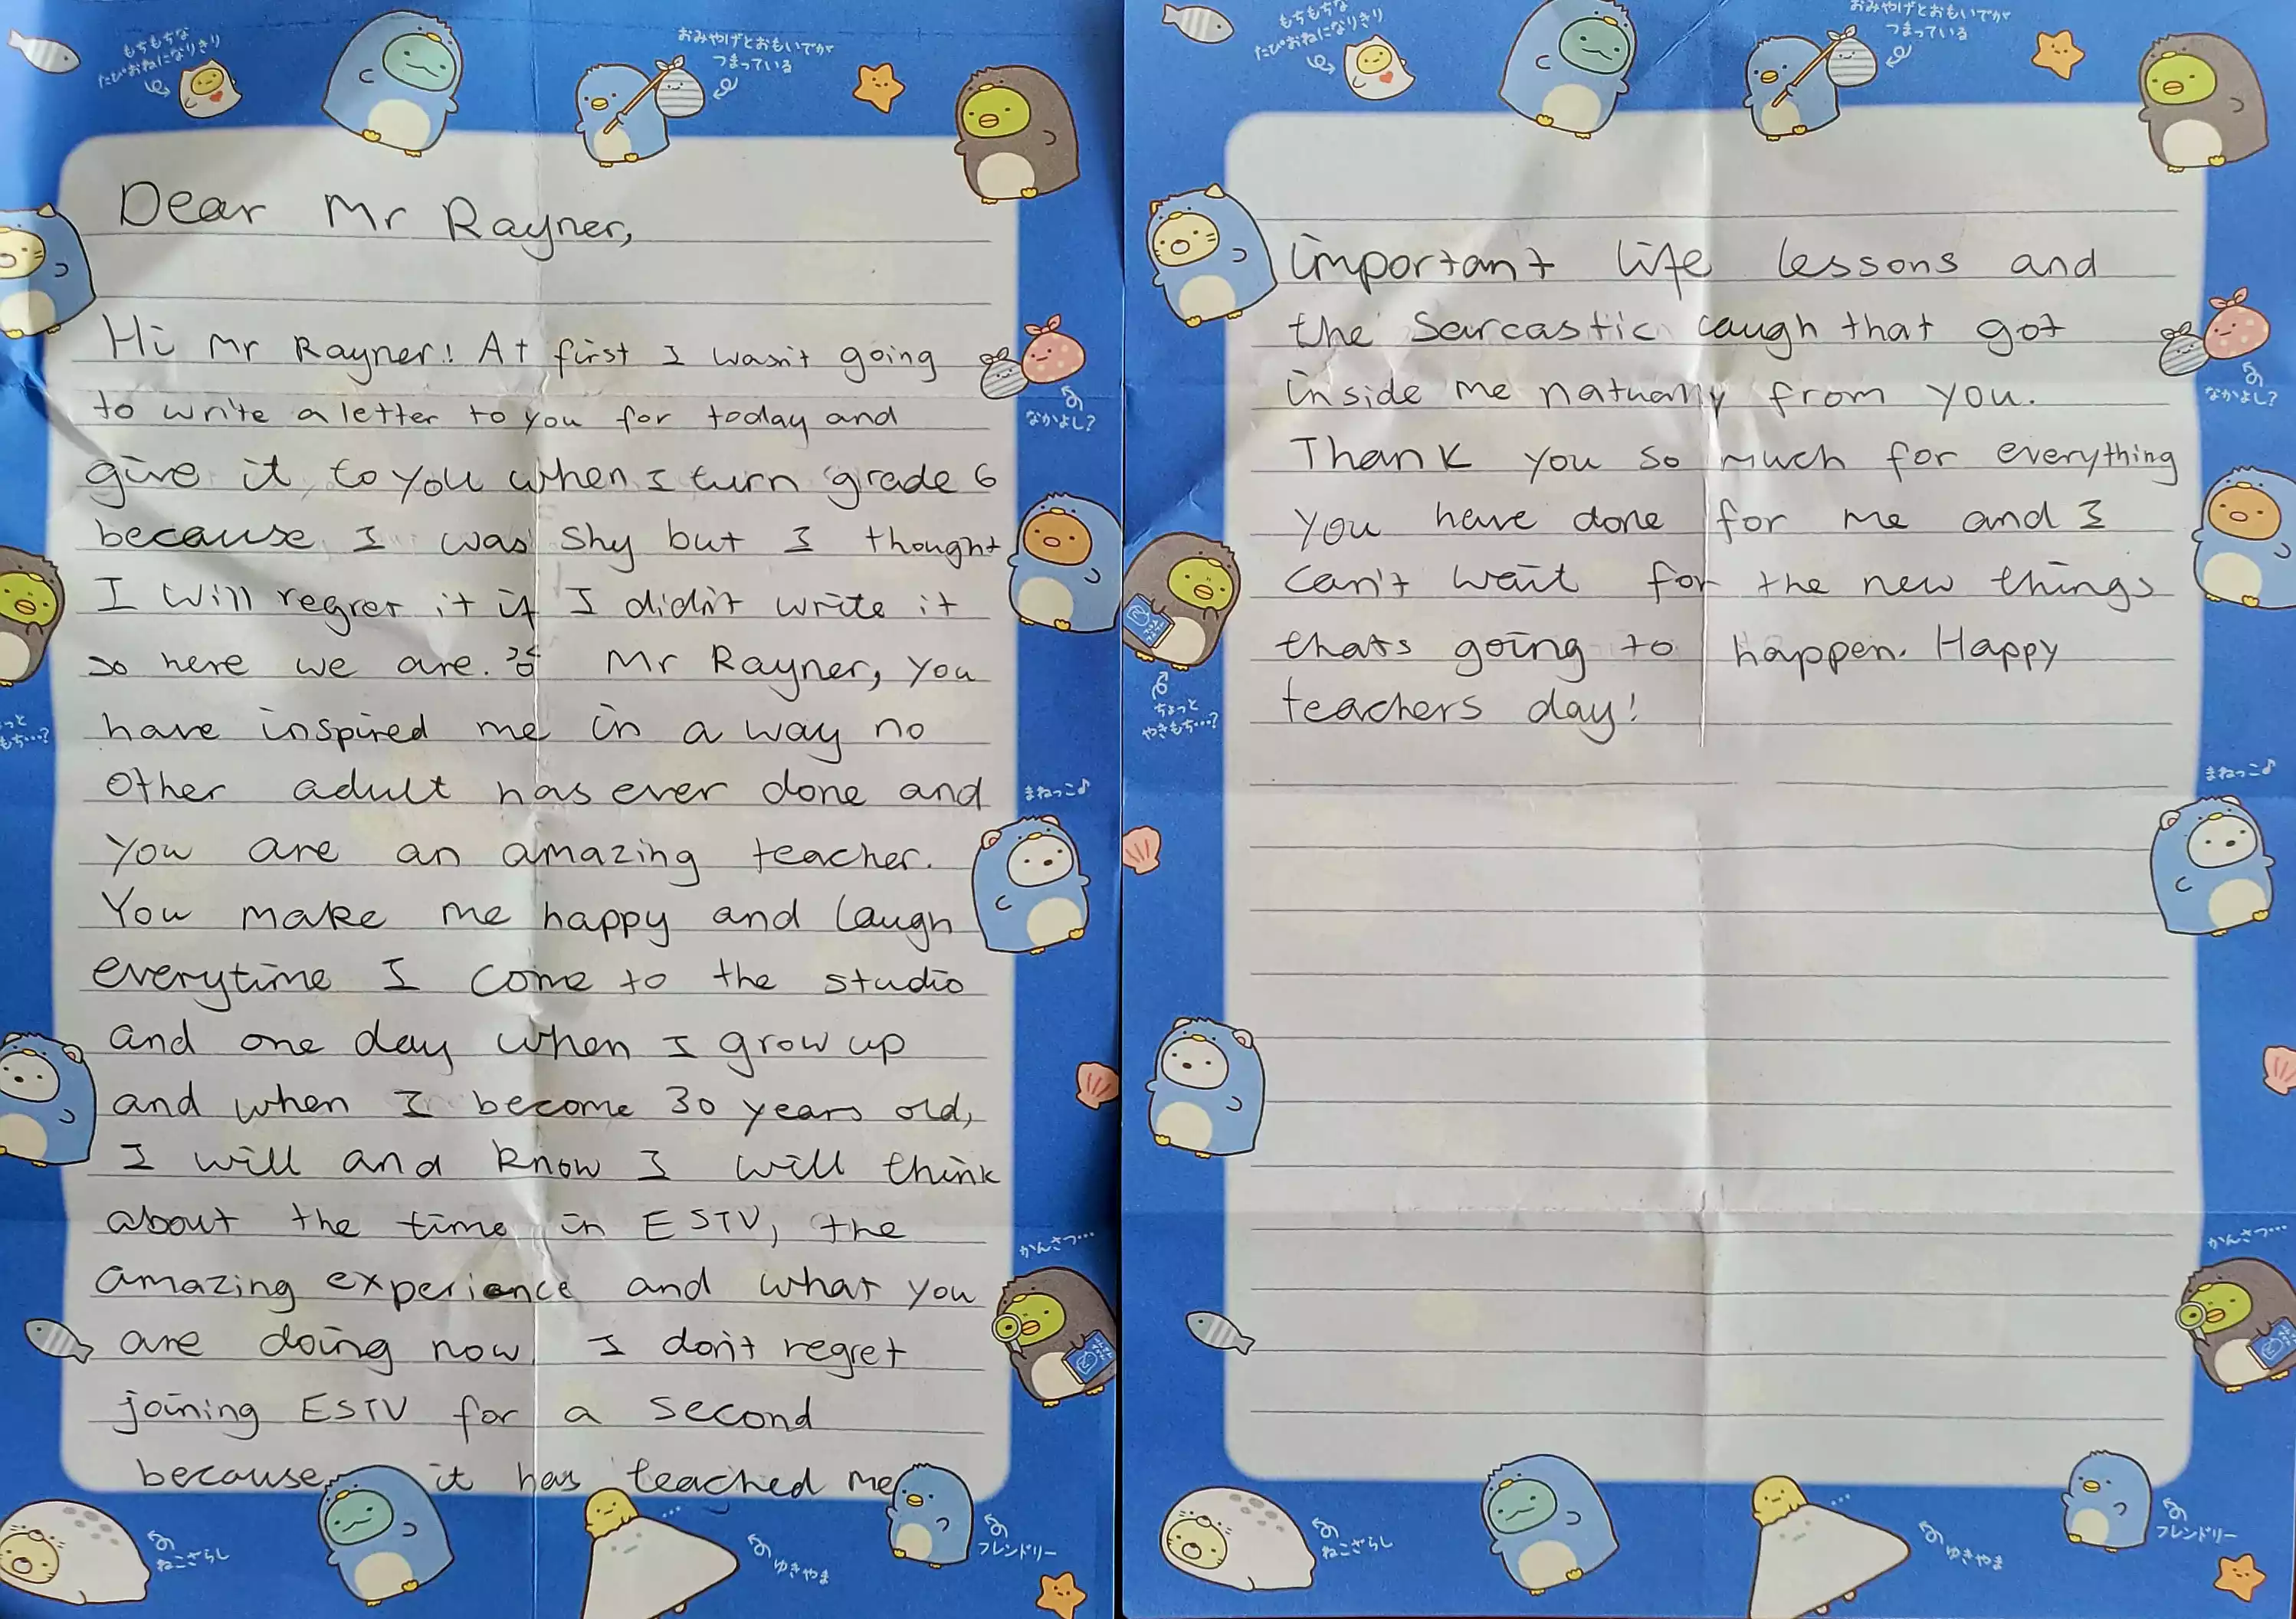 もちもちな
たぴおねになりきり
おみやげとおもいでが
つまっている
Dear Mr Rayner,
Hi Mr Rayner! At first I wasn't going
to write a letter to you for today and
give it to you when I turn grade 6
because I was shy but I thought
I will regret it if I didn't write it
so here we are. Mr Rayner, you
have inspired me in a way no
other adult has ever done and
you are an amazing teacher.
You make me happy and laugh
everytime I come to the studio
and one day when I grow up
and when I become 30 years old,
I will and know I will think
about the time in ESTV, the
amazing experience and what you
are doing now. I don't regret
joining ESTV for a second
because it has teached me
なかよし?
まねっこ♪
かんさつ…
ねこざらし
ゆきやま
フレンドリー
もちもちな
たぴおねになりきり
おみやげとおもいでが
つまっている
important life lessons and
the sarcastic laugh that got
inside me natually from you.
Thank you so much for everything
you have done for me and I
can't wait for the new things
thats going to happen. Happy
teachers day!
なかよし?
ちょっと
やきもち…?
まねっこ♪
かんさつ…
ねこざらし
ゆきやま
フレンドリー